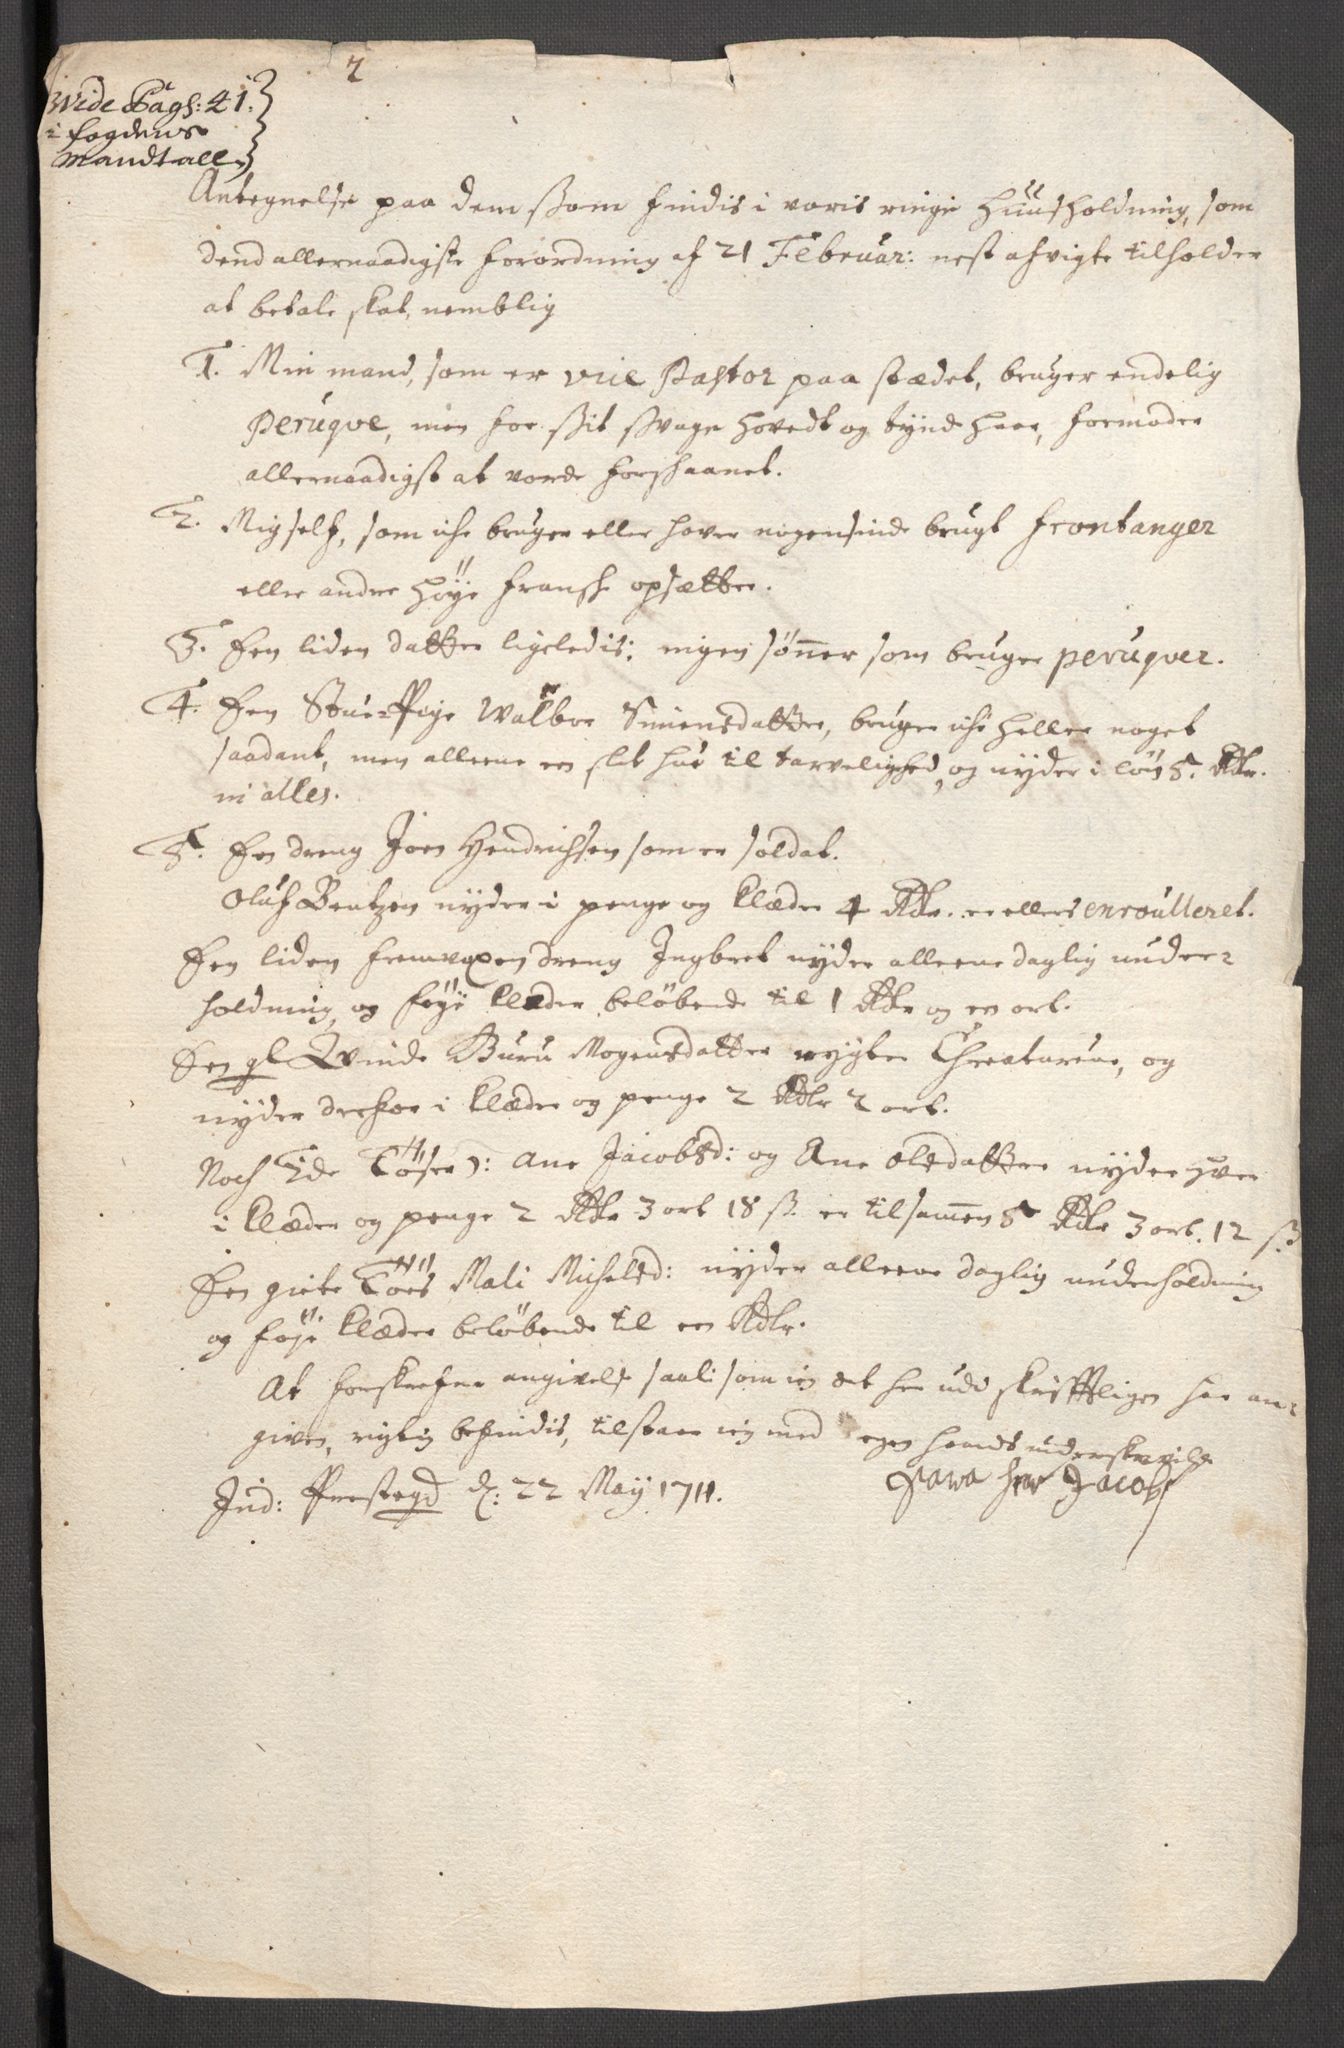 2
Wide Pags: 41.
i fogdens
Mandtall
Antegnelse paa dem ssom findis i voris ringe Huusholdning, som
dend allernaadigste forordning af 21 Februar: nest afvigte tilholder
at betale skat, nemblig
1. Min mand, som er vice Pastor paa stædet, bruger endelig
Peruqve, men for ssit svage Hovedt og tynde haar, formoder
allernaadigst at vorde forskaanet.
2. Mig self, som icke bruger eller haver nogensinde brugt frontanger
eller andre høye franske opsætter.
3. Een liden datter ligeledis; ingen sønner som bruger peruqver.
4. Een Stue-Pige Walbor Simensdatter, bruger icke heller noget
saadant, men alleene en slet hue til tarvelighed, og nyder i løn 5. Rdr.
in alles.
5. Een dreng Joen Hendrichsen som er soldat.
Oluf Bentzen nyder i penge og klæder 4 Rdr. er ellers enroulleret.
Een liden fremvoxen dreng Ingbret nyder alleene daglig under-
holdning, og føye klæder beløbende til 1 Rdr og en ort.
Een gl Qvinde Buru Mogensdatter røgter Chreaturene, og
nyder derfor i klæder og penge 2 Rdlr 2 ort.
Noch 2de Tøser: Ane Jacobsd: og Ane Olsdatter nyder hver
i klæder og penge 2 Rdr 3 ort 18 s. er tilsamen 5 Rdr 3 ort. 12 s.
Een giete Tøes Mali Michelsd: nyder alleene daglig underholdning
og føje klæder beløbende til een Rdlr.
At forskrefne angivelse saale som ieg det her udi skrifftligen har an-
given, rigtig befindis, tilstaar ieg med egen hands underskrift
Ind: Prestegd d: 22 May 1711.
Sara her Jacobs